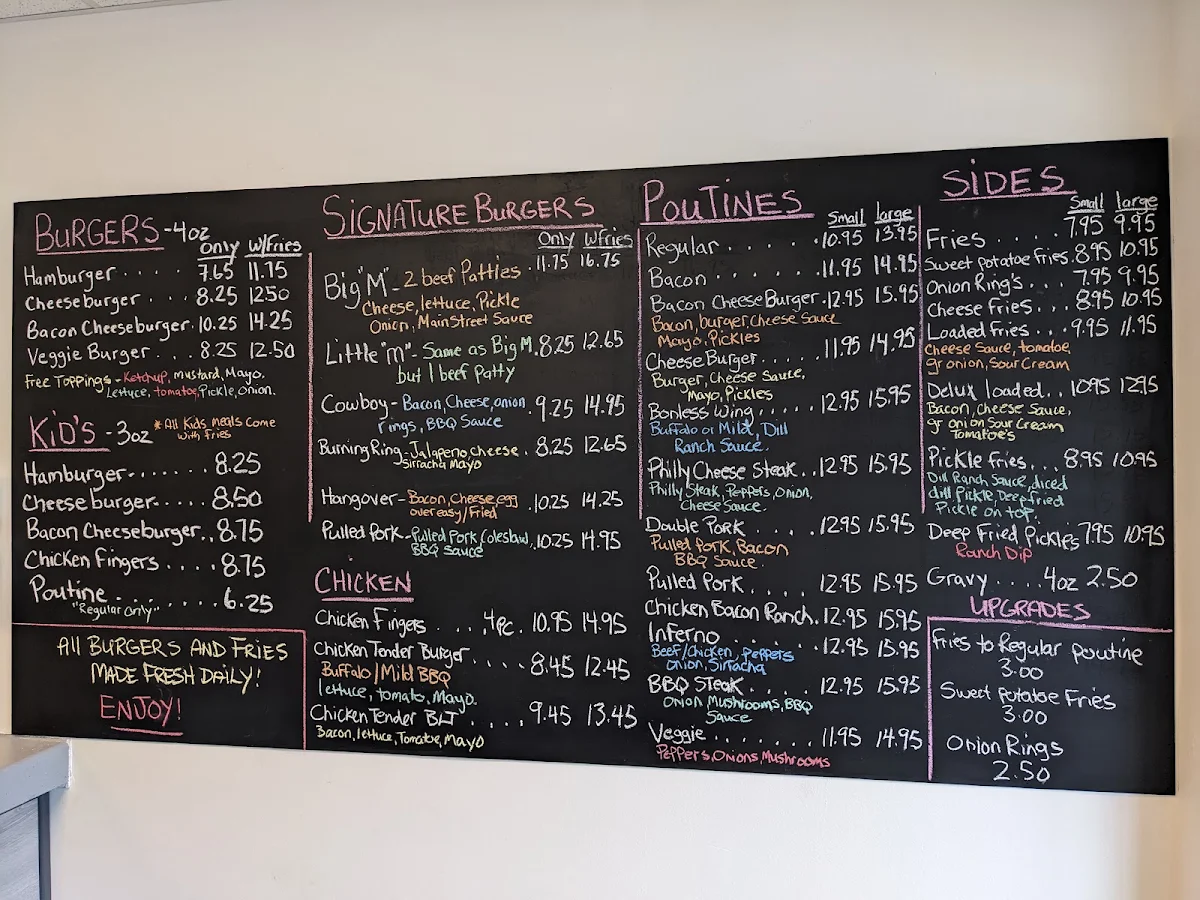 BURGERS - 4oz
Only W/Fries
Hamburger . . . . 7.65 11.75
Cheeseburger . . . 8.25 12.50
Bacon Cheeseburger . 10.25 14.25
Veggie Burger . . . 8.25 12.50
Free Toppings - Ketchup, Mustard, Mayo.
Lettuce, tomatoe, Pickle, onion.
KiD'S - 3oz
* All Kids meals come
with fries
Hamburger . . . . . . . 8.25
Cheeseburger . . . . 8.50
Bacon Cheeseburger . . 8.75
Chicken Fingers . . . . 8.75
Poutine . . . . . . . . 6.25
"Regular Only"
All BURGERS AND FRIES
MADE FRESH DAILY!
ENJOY!
SiGNATURE BURGERS
Only W Fries
Big "M" - 2 beef Patties . 11.75 16.75
Cheese, lettuce, Pickle
Onion, Main Street Sauce
Little "m" - Same as Big M. 8.25 12.65
but 1 beef Patty
Cowboy - Bacon, Cheese, onion . 9.25 14.95
rings, BBQ Sauce
Burning Ring - Jalapeno cheese . 8.25 12.65
Sirracha Mayo
Hangover - Bacon, Cheese, egg . 10.25 14.25
over easy/Fried
Pulled Pork - Pulled Pork, Coleslaw, 10.25 14.95
BBQ Sauce
CHICKEN
Chicken Fingers . . . . 4pc. 10.95 14.95
Chicken Tender Burger . . . . 8.45 12.45
Buffalo / Mild BBQ
lettuce, tomato, Mayo.
Chicken Tender BLT . . . . 9.45 13.45
Bacon, lettuce, Tomatoe, Mayo
POUTINES
Small large
Regular . . . . . . 10.95 13.95
Bacon . . . . . . . 11.95 14.95
Bacon Cheese Burger . 12.95 15.95
Bacon, burger, Cheese Sauce
Mayo, Pickles
Cheese Burger . . . . 11.95 14.95
Burger, Cheese Sauce,
Mayo, Pickles
Bonless Wing . . . . . 12.95 15.95
Buffalo or Mild, Dill
Ranch Sauce.
Philly Cheese Steak . . 12.95 15.95
Philly Steak, Peppers, Onion,
Cheese Sauce.
Double Pork . . . . 12.95 15.95
Pulled Pork, Bacon
BBQ Sauce.
Pulled Pork . . . . 12.95 15.95
Chicken Bacon Ranch . 12.95 15.95
Inferno . . . . . . . 12.95 15.95
Beef/Chicken, Peppers
Onion, Sirracha
BBQ Steak . . . . 12.95 15.95
Onion Mushrooms, BBQ
Sauce
Veggie . . . . . . . 11.95 14.95
Peppers, Onions, Mushrooms
SiDES
Small large
Fries . . . . . 7.95 9.95
Sweet Potatoe Fries . 8.95 10.95
Onion Ring's . . . . 7.95 9.95
Cheese Fries . . . . 8.95 10.95
Loaded Fries . . . 9.95 11.95
Cheese Sauce, tomatoe,
gr onion, Sour Cream
Delux loaded . . 10.95 12.95
Bacon, cheese Sauce,
gr onion Sour Cream
Tomatoe's
Pickle fries . . . 8.95 10.95
Dill Ranch Sauce, diced
dill Pickle, Deep fried
Pickle on top.
Deep Fried Pickles 7.95 10.95
Ranch Dip
Gravy . . . . 4oz 2.50
UPGRADES
Fries to Regular poutine
3.00
Sweet Potatoe Fries
3.00
Onion Rings
2.50